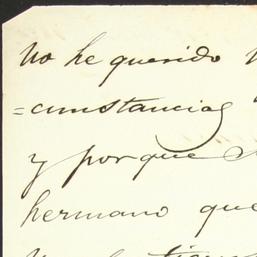 No he querido
=cunstancias
y porque
hermano que